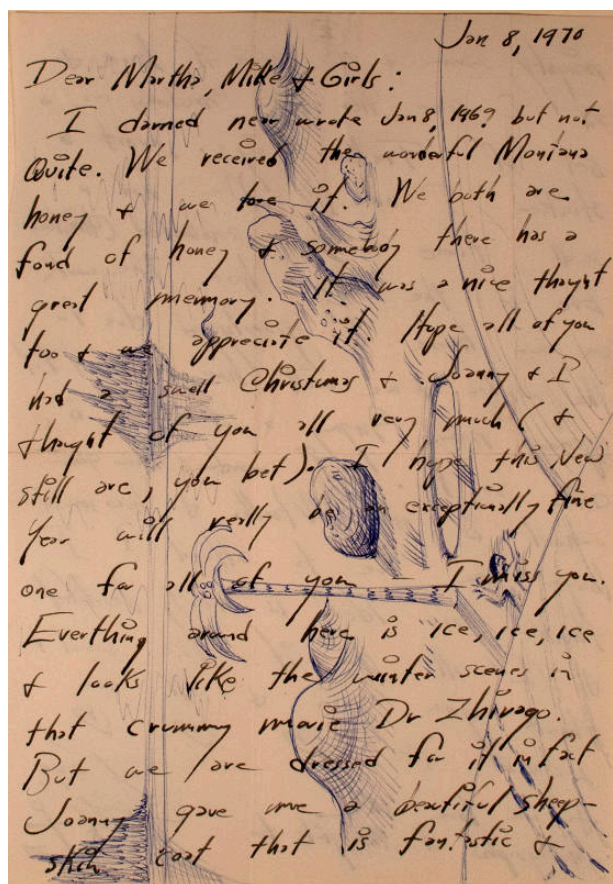 Jan 8, 1970
Dear Martha, Mike & Girls:
I darned near wrote Jan 8, 1969 but not
Quite. We received the wonderful Montana
honey & we love it. We both are
fond of honey & somebody there has a
great memmory. It was a nice thought
too & we appreciate it. Hope all of you
had a swell Christmas & Joanny & I
thought of you all very much (&
still are, you bet). I hope this New
Year will really be an exceptionally fine
one for all of you I miss you.
Everthing around here is ice, ice, ice
& looks like the winter scenes in
that crummy movie Dr Zhivago.
But we are dressed for it in fact
Joanny gave me a beautiful sheep-
skin coat that is fantastic &